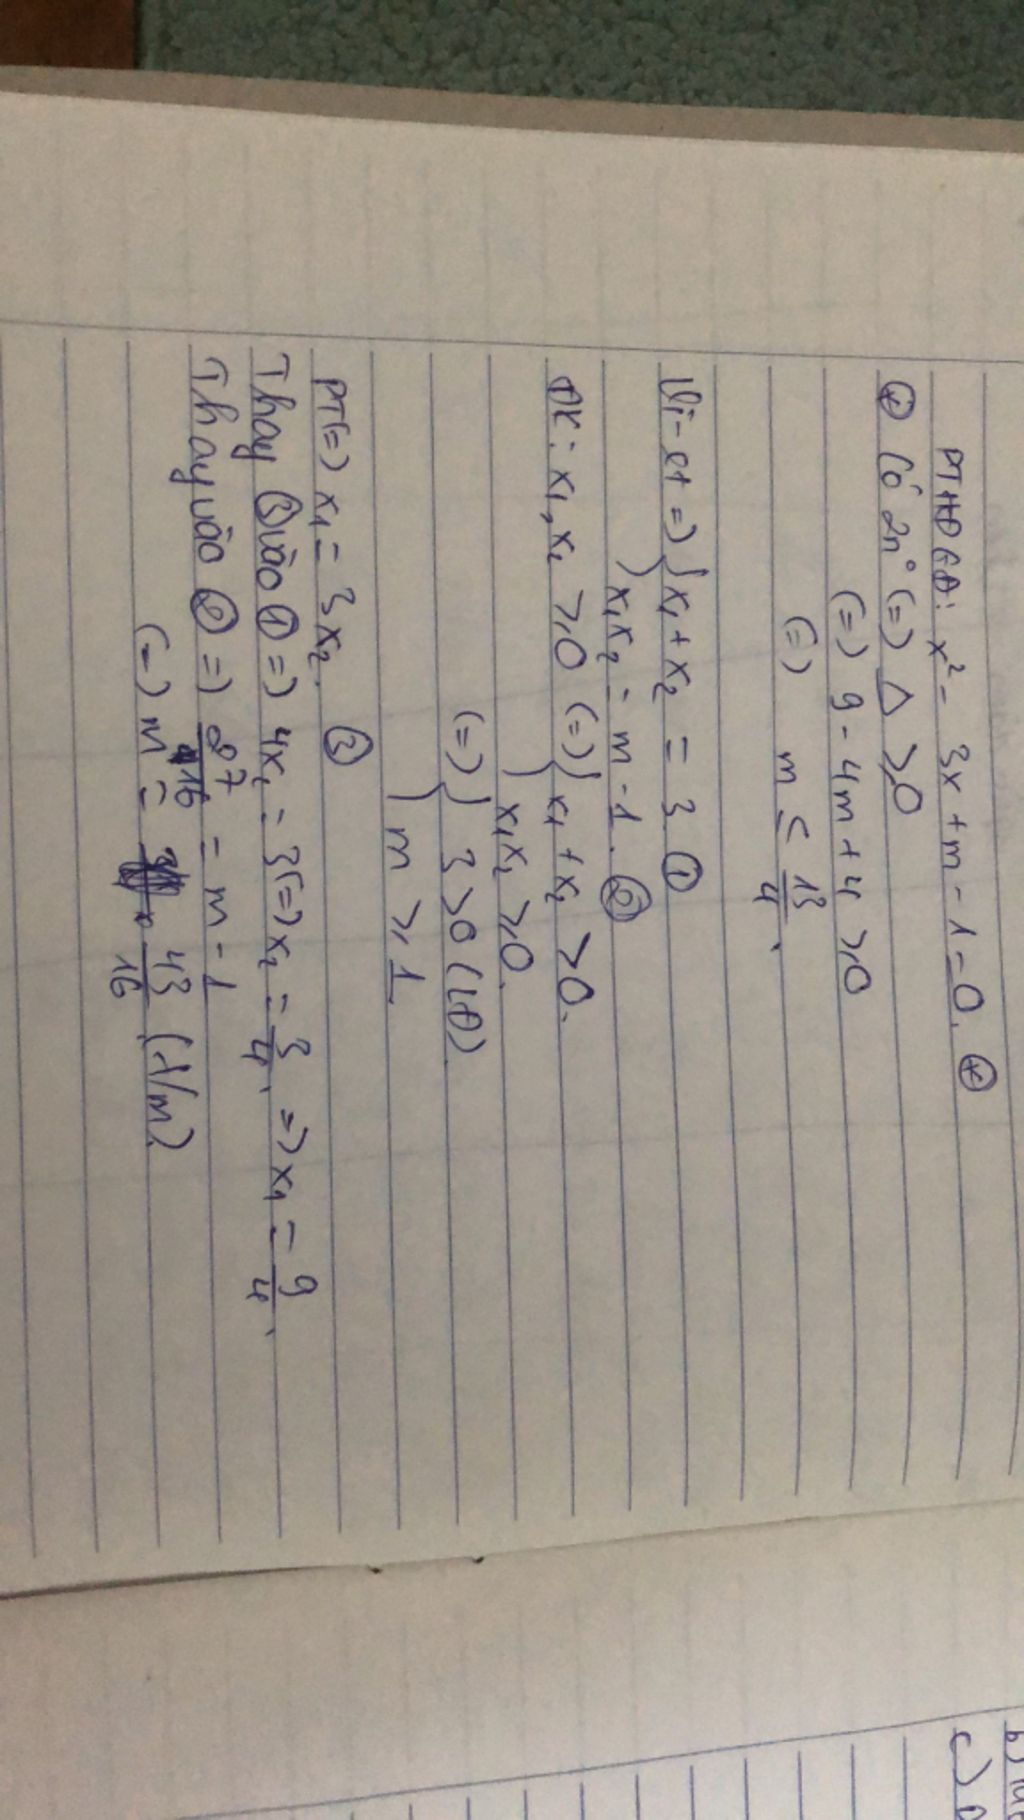 PTHĐGĐ: x² - 3x + m - 1 = 0. (*)
(*) Có 2n° (=) Δ ⩾ 0
(=) 9 - 4m + 4 ⩾ 0
(=) m ≤ 13/4.
Vi-et =) { x₁ + x₂ = 3 ①
x₁x₂ = m - 1. ②
ĐK: x₁, x₂ ⩾ 0 (=) { x₁ + x₂ > 0.
x₁x₂ ⩾ 0.
(=) { 3 > 0 (LĐ)
m ⩾ 1
PT (=) x₁ = 3x₂. ③
Thay ③ vào ① =) 4x₂ = 3 (=) x₂ = 3/4. =) x₁ = 9/4.
Thay vào ② =) 27/16 = m - 1
(=) m = 43/16 (t/m)
c)